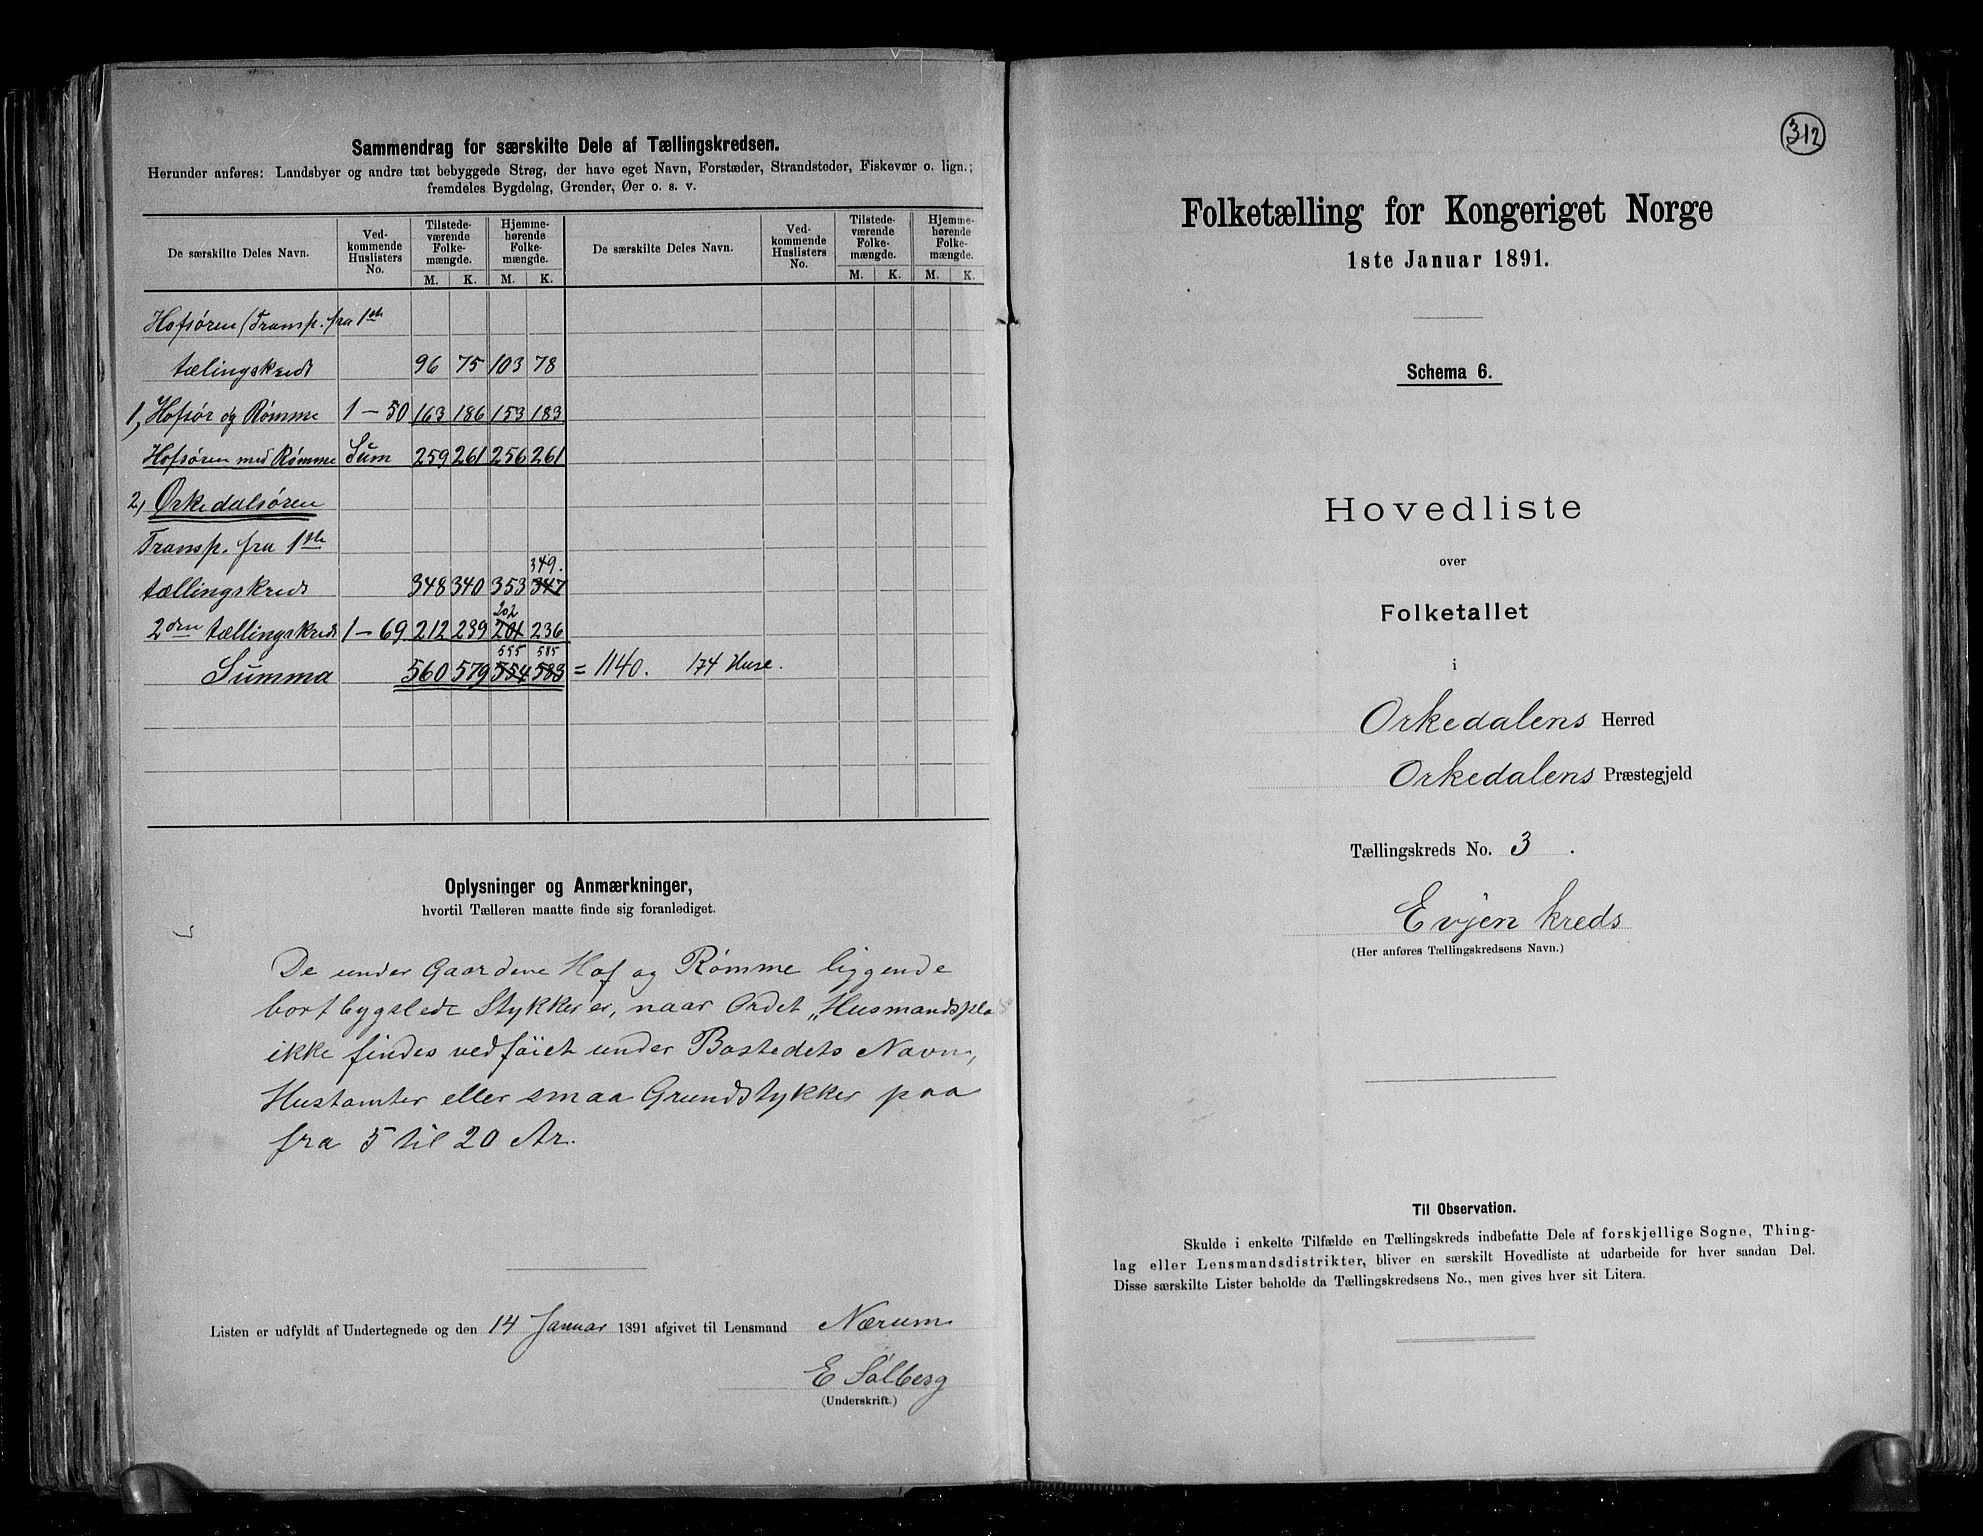 Sammendrag for særskilte Dele af Tællingskredsen.
Herunder anføres: Landsbyer og andre tæt bebyggede Strøg, der have eget Navn, Forstæder, Strandsteder, Fiskevær o. lign.;
fremdeles Bygdelag, Grender, Øer o. s. v.
De særskilte Deles Navn.
Ved-
kommende
Huslisters
No.
Tilstede-
værende
Folke-
mængde.
Hjemme-
hørende
Folke-
mængde.
De særskilte Deles Navn.
Ved-
kommende
Huslisters
No.
Tilstede-
værende
Folke-
mængde.
Hjemme-
hørende
Folke-
mængde.
M. K. M. K. M. K. M. K.
Hofsøren (Transp. fra 1ste
tælingskreds 96 75 103 78
1, Hofsør og Rømme 1-50 163 186 153 183
Hofsøren med Rømme Sum 259 261 256 261
2, Orkedalsøren
Transp. fra 1ste
349.
tællingskreds 348 340 353 347
202
2den tællingskreds 1-69 212 239 201 236
555 585
Summa 560 579 554 583 = 1140. 174 Huse.
Oplysninger og Anmærkninger,
hvortil Tælleren maatte finde sig foranlediget.
De under Gaardene Hof og Rømme liggende
bortbygslede Stykker er, naar Ordet „Husmandspla
ikke findes vedføiet under Bostedets Navn,
Hustomter eller smaa Grundstykker paa
fra 5 til 20 Ar.
Listen er udfyldt af Undertegnede og den 14 Januar 1891 afgivet til Lensmand Nærum
E Solberg
(Underskrift.)
312
Folketælling for Kongeriget Norge
1ste Januar 1891.
Schema 6.
Hovedliste
over
Folketallet
i
Orkedalens Herred
Orkedalens Præstegjeld
Tællingskreds No. 3.
Evjen kreds
(Her anføres Tællingskredsens Navn.)
Til Observation.
Skulde i enkelte Tilfælde en Tællingskreds indbefatte Dele af forskjellige Sogne, Thing-
lag eller Lensmandsdistrikter, bliver en særskilt Hovedliste at udarbeide for hver saadan Del.
Disse særskilte Lister beholde da Tællingskredsens No., men gives hver sit Litera.